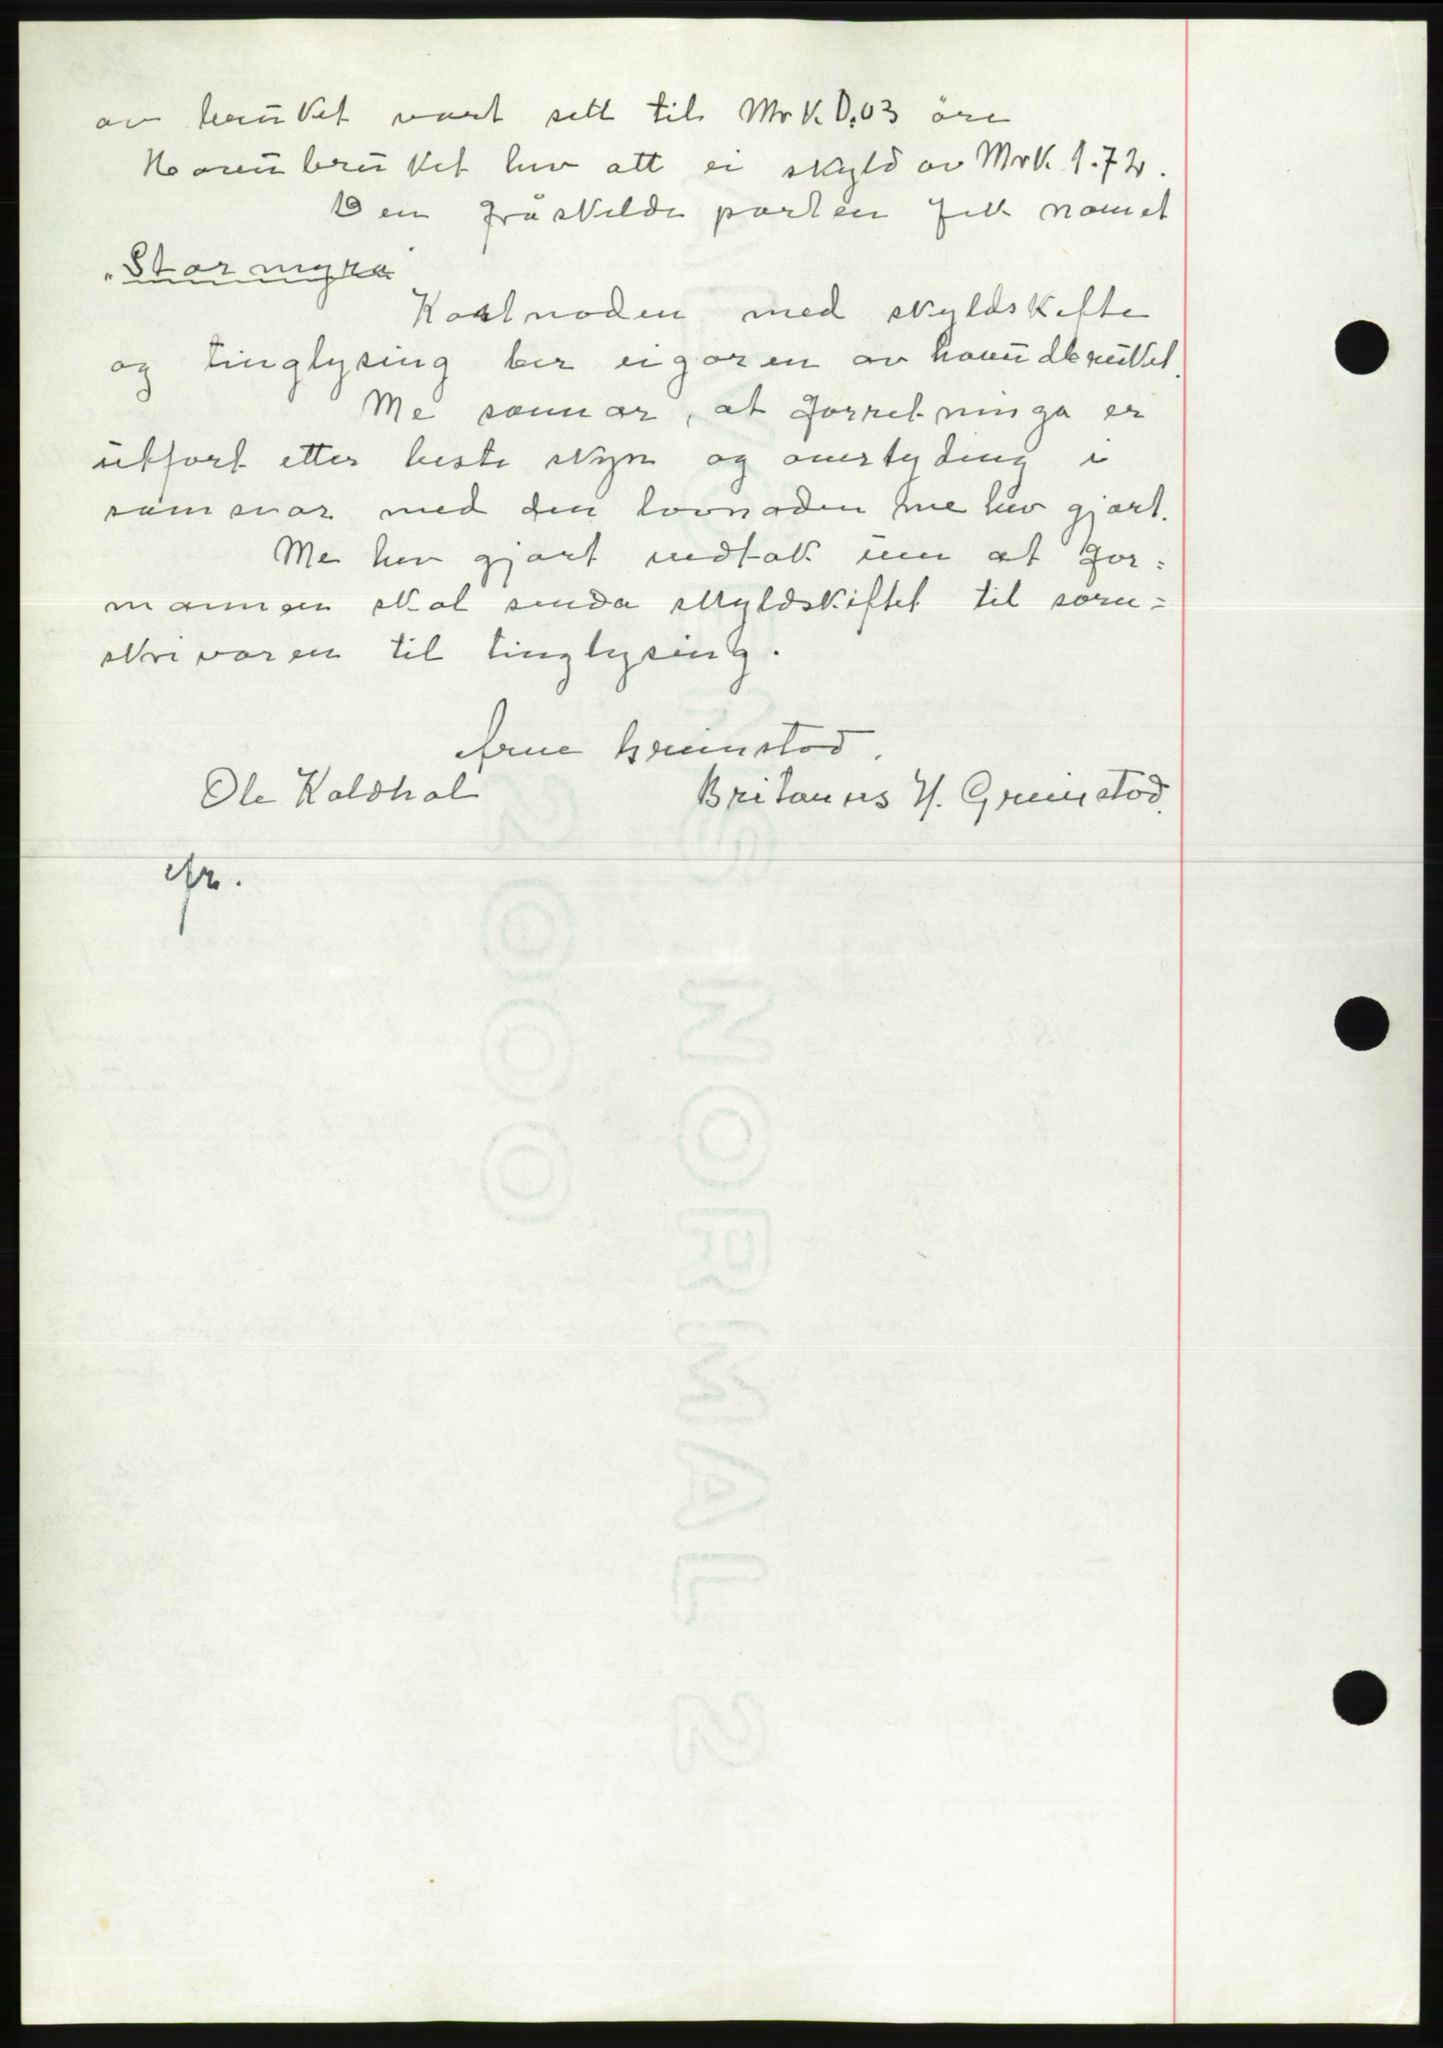 av bruket vart sett til Mrk. 0,03 öre
Hovudbruket hev att ei skyld av Mrk 1.72.
Den fråskilde parten fek namet
„Stormyra"
Kostnaden med skyldskifte
og tinglysing ber eigaren av hovudbruket.
Me sannar, at forretninga er
utført etter beste skyn og overtyding i
samsvar med den lovnaden me hev gjort.
Me hev gjort vedtak um at for=
mannen skal senda skyldskiftet til soren=
skrivaren til tinglysing.
Arne Grimstad.
Ole Kaldhol Britanus H. Grimstad.
NORMAL 2
2000